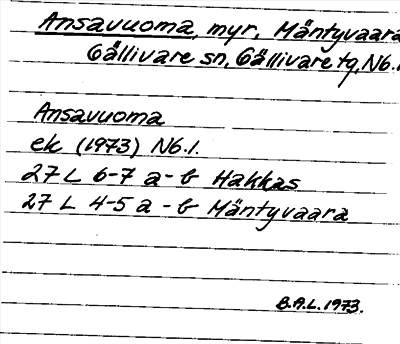 Ansavuoma, myr, Mäntyvaara
Gällivare sn, Gällivare tg, Nb.
Ansavuoma
ek (1973) Nb.1.
27 L 6-7 a-b Hakkas
27 L 4-5 a - b Mäntyvaara
B.A.L. 1973.